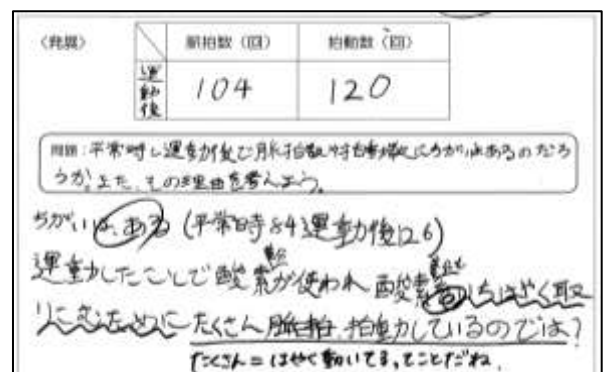 〈発展〉
脈拍数（回） 拍動数（回）
運動後 104 120
問題：平常時と運動後で脈拍数や拍動数にちがいはあるのだろ
うか。また、その理由を考えよう。
ちがいは、ある（平常時84運動後126）
運動したことで酸素が使われ酸素をいちはやく取
りこむために たくさん 拍動しているのでは？
たくさん＝はやく動いてる、ってことだね。